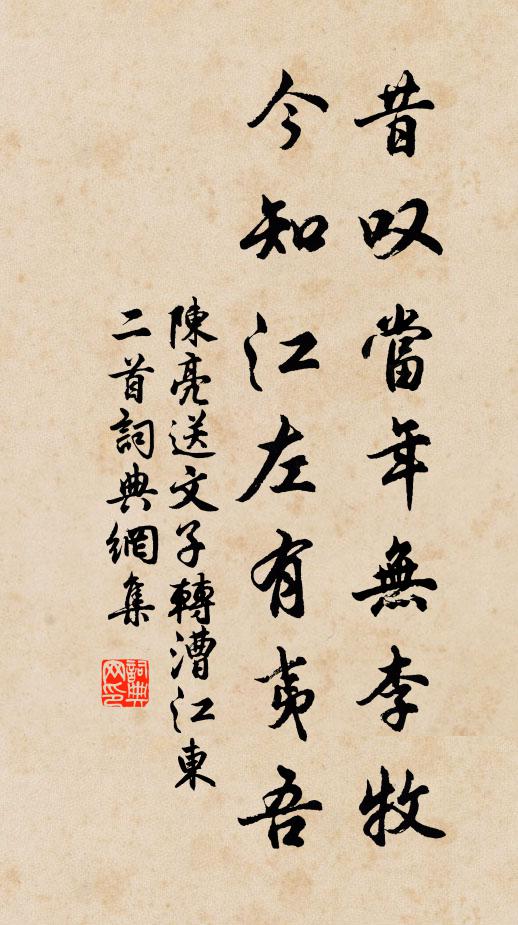 昔叹當年無李牧
今知江左有夷吾
陳亮送文子轉漕江東
二首詞典網集
詞典
网印